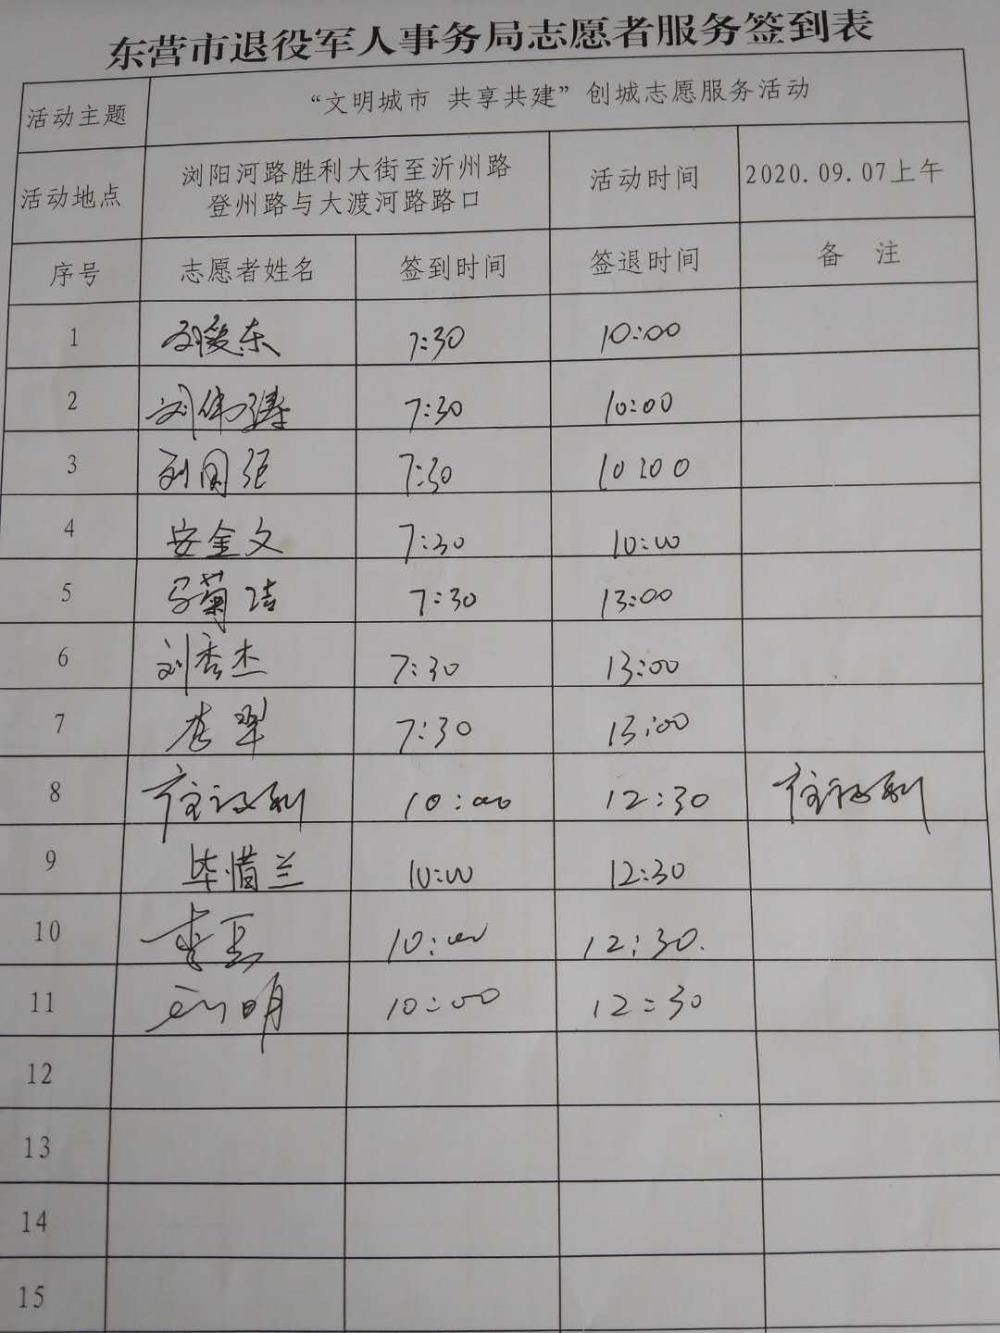 东营市退役军人事务局志愿者服务签到表
活动主题 “文明城市 共享共建”创城志愿服务活动
活动地点 浏阳河路胜利大街至沂州路 登州路与大渡河路路口 活动时间 2020.09.07上午
序号 志愿者姓名 签到时间 签退时间 备 注
1 7:30 10:00
2 刘伟涛 7:30 10:00
3 刘国强 7:30 10:00
4 安金文 7:30 10:00
5 马菊洁 7:30 13:00
6 刘秀杰 7:30 13:00
7 李翠 7:30 13:00
8 10:00 12:30
9 毕惜兰 10:00 12:30
10 10:00 12:30.
11 刘明 10:00 12:30
12
13
14
15